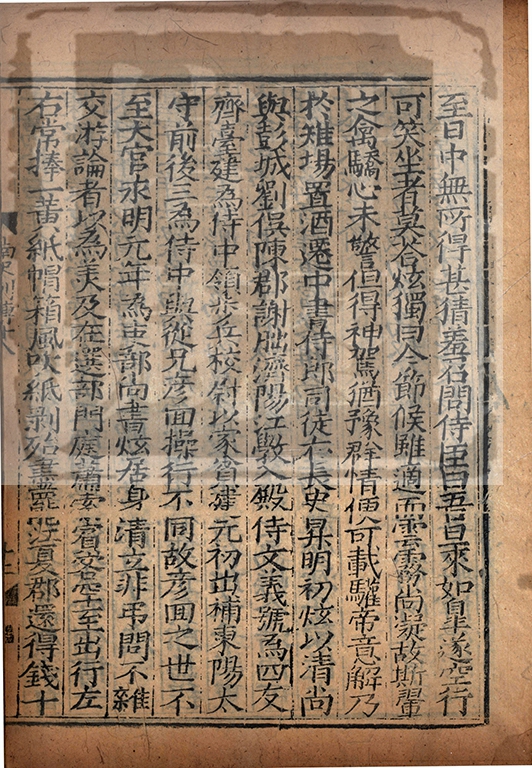 至日中無所得甚猜羞召問侍臣曰吾旦來如皐遂空行
可笑坐者莫荅炫獨曰今節候雖適而雲霧尚凝故斯翬
之禽驕心未警但得神駕猶豫群情便可載驩帝意解乃
於雉場置酒遷中書侍郎司徒右長史昇明初炫以清尚
與彭城劉俣陳郡謝朏濟陽江斆入殿侍文義號為四友
齊臺建為侍中領步兵校尉以家貧建元初出補東陽太
守前後三為侍中與從兄彦回操行不同故彦回之世不
至大官永明元年為吏部尚書炫居身清立非弔問不雜
交游論者以為美及在選部門庭蕭索賔客罕至出行左
右常捧一黃紙帽箱風吹紙剥殆盡罷江夏郡還得錢十